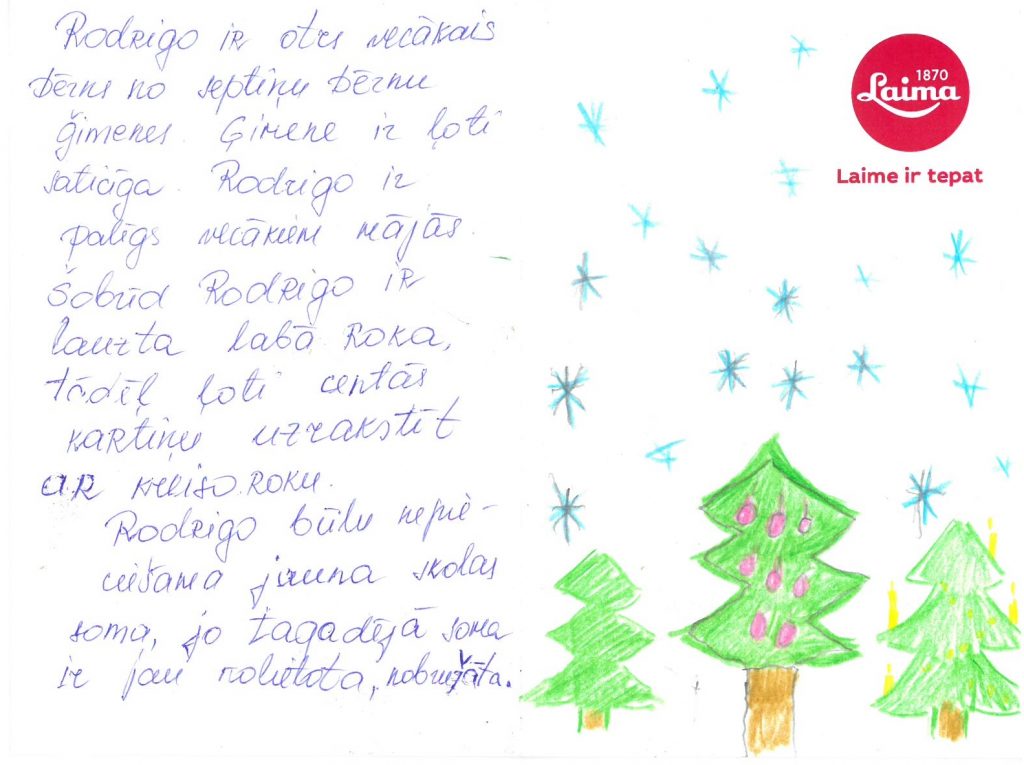 Rodrigo ir otrs vecākais
bērns no septiņu bērnu
ģimenes. Ģimene ir ļoti
saticīga. Rodrigo ir
palīgs vecākiem mājās.
Šobrīd Rodrigo ir
lauzta labā roka,
tādēļ ļoti centās
kartiņu uzrakstīt
ar kreiso roku.
Rodrigo būtu nepie-
ciešama jauna skolas
soma, jo tagadējā soma
ir jau nolietota, nobružāta.
1870
Laima
Laime ir tepat